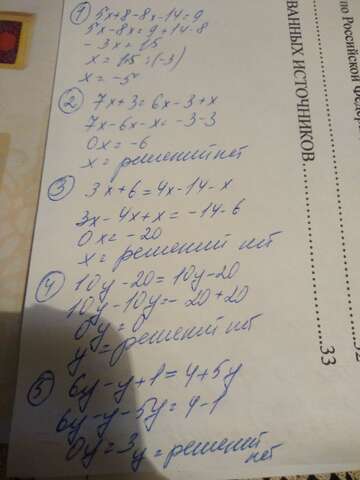 1) 5x+8-8x-14=9
5x-8x=9+14-8
-3x=15
x=15:(-3)
x=-5
2) 7x+3=6x-3+x
7x-6x-x=-3-3
0x=-6
x=решений нет
3) 3x+6=4x-14-x
3x-4x+x=-14-6
0x=-20
x=решений нет
4) 10y-20=10y-20
10y-10y=-20+20
0y=0
y=решений нет
5) 6y-y+1=4+5y
6y-y-5y=4-1
0y=3y=решений
нет
ВАННЫХ ИСТОЧНИКОВ
33
по Российской Федер